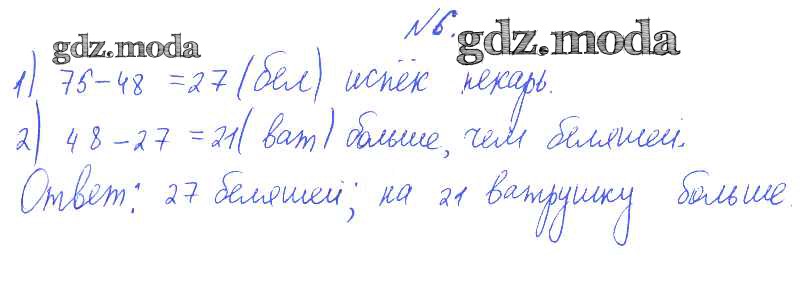 №6.
gdz.moda gdz.moda
1) 75-48 =27 (бел) испёк пекарь.
2) 48-27 =21( ват) больше, чем беляшей.
Ответ: 27 беляшей; на 21 ватрушку больше.